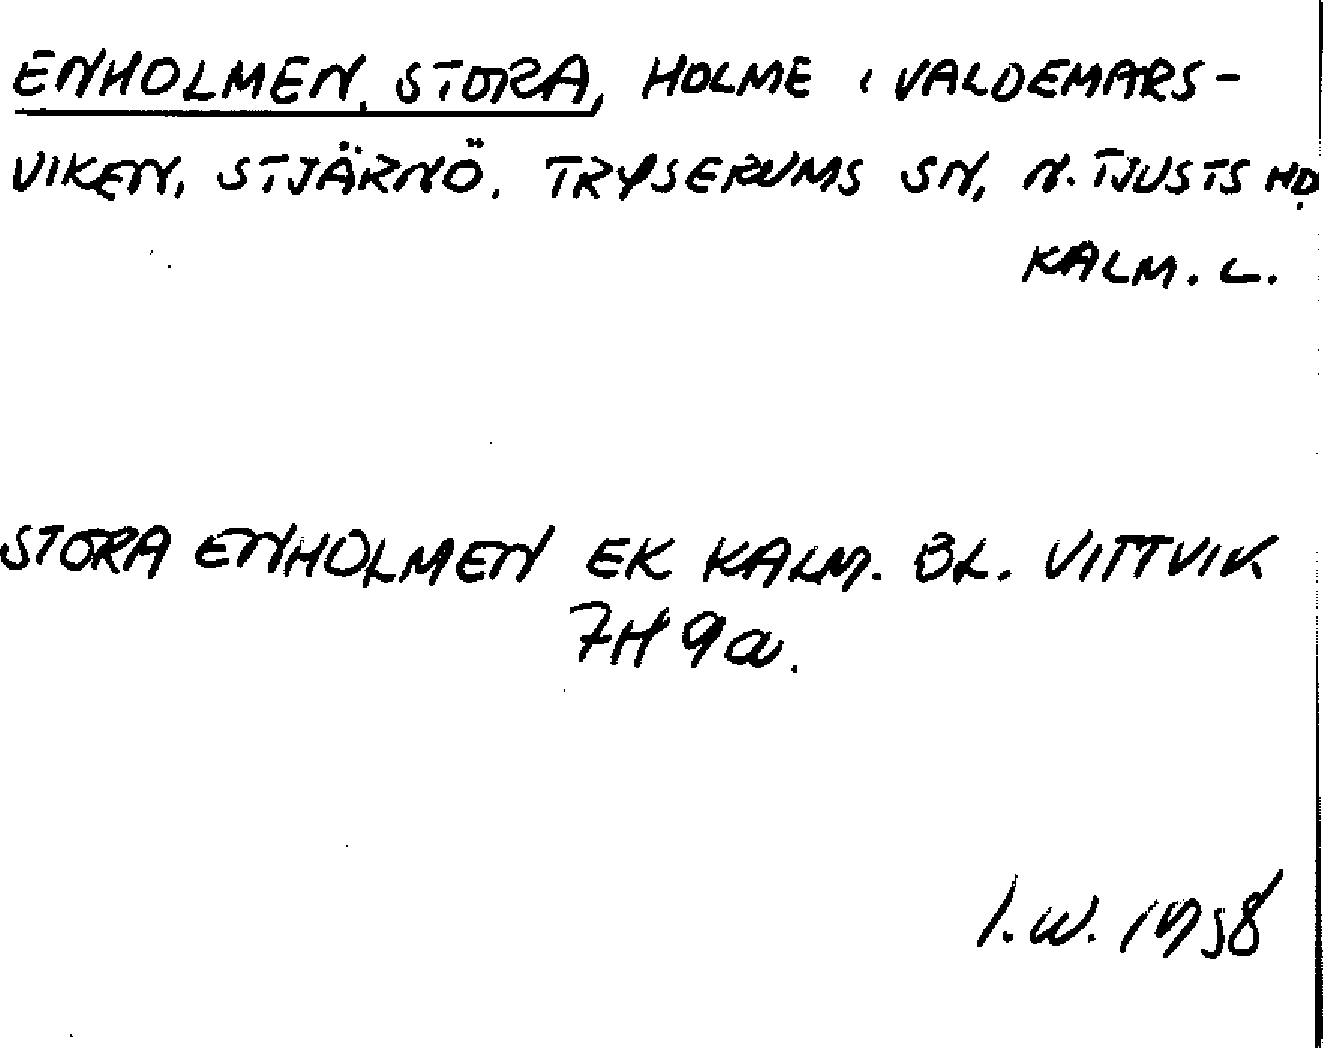 ENHOLMEN, STORA, HOLME I VALDEMARS-
VIKEN, STJÄRNÖ. TRYSERUMS SN, N. TJUSTS HD.
KALM. L.
STORA ENHOLMEN EK KALM. BL. VITTVIK
7H 9a.
I.W. 1958